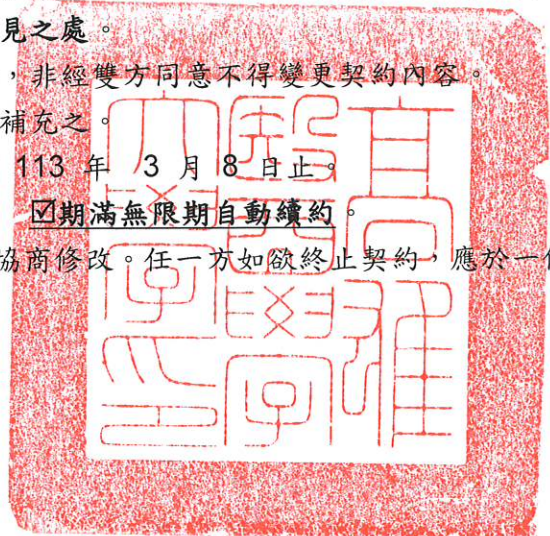 見之處。
，非經雙方同意不得變更契約內容。
補充之。
113 年 3 月 8 日止。
☑期滿無限期自動續約。
協商修改。任一方如欲終止契約，應於一
高雄醫學大學印